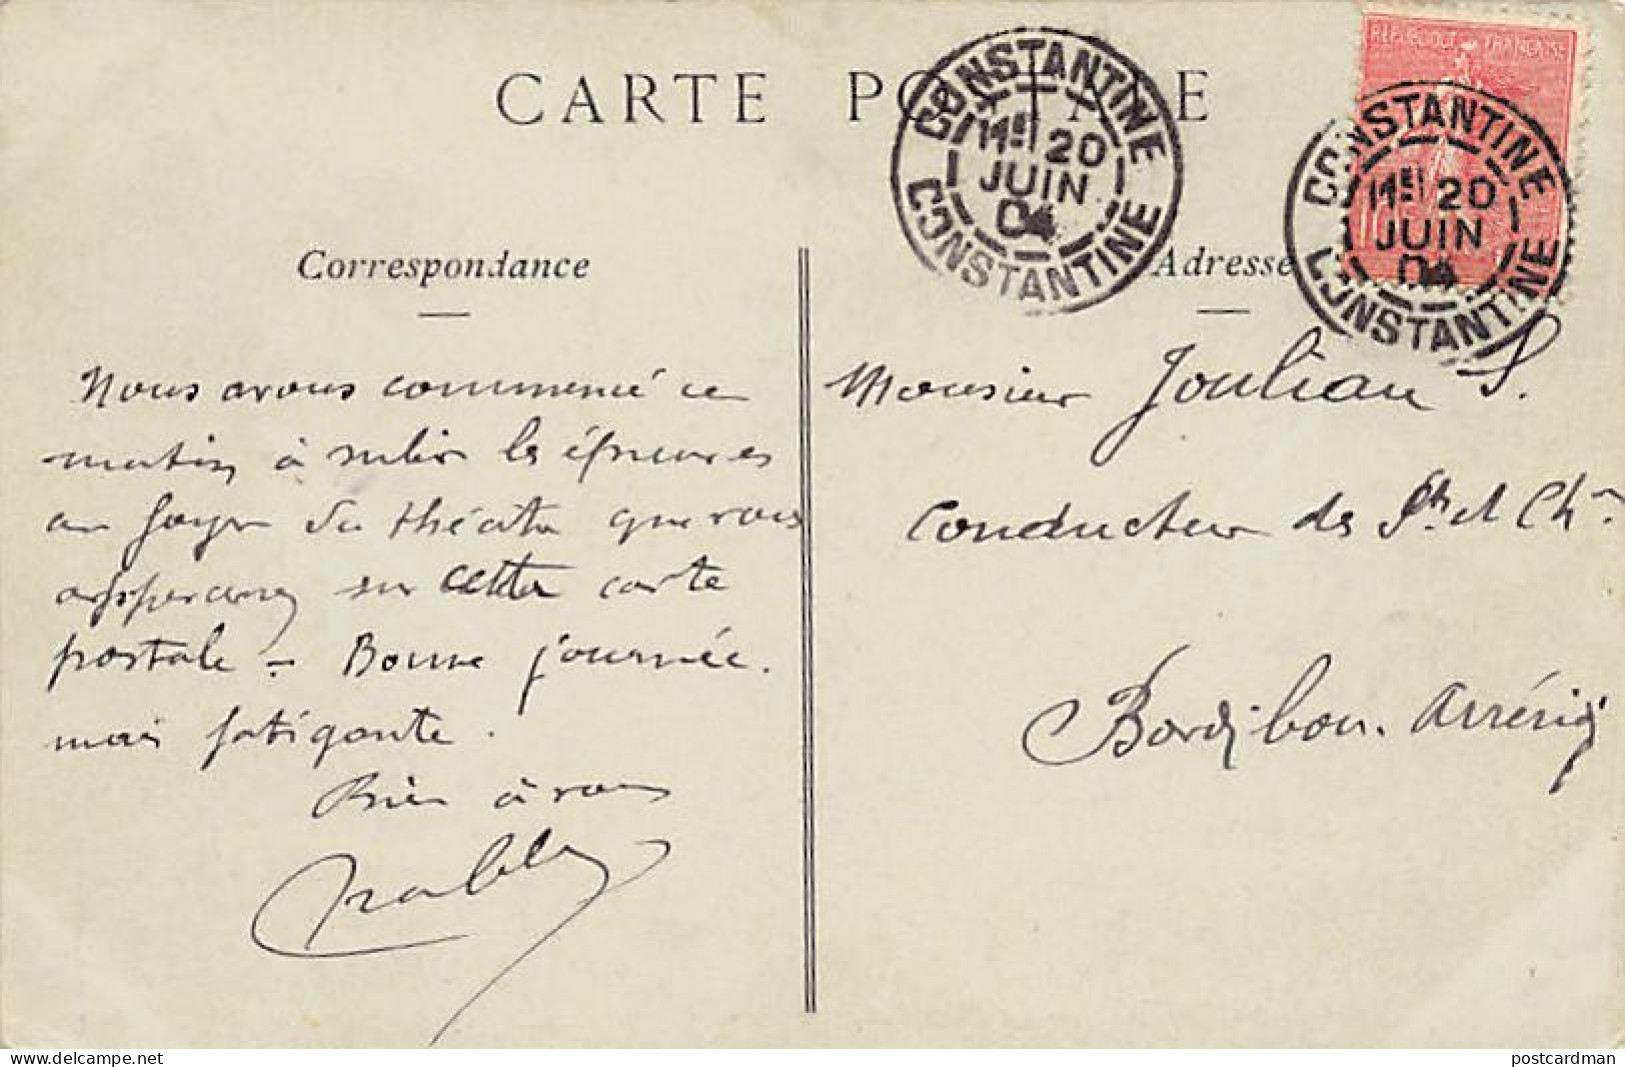 CARTE POSTALE
CONSTANTINE
11E 20
JUIN
04
CONSTANTINE
REPUBLIQUE FRANÇAISE
CONSTANTINE
11E 20
JUIN
04
CONSTANTINE
Correspondance
Nous avons commencé ce
matin à subir les épreuves
au foyer du théâtre que vous
appercevez sur cette carte
postale - Bonne journée.
mais fatigante.
Bien à vous
Adresse
Monsieur Joulian S.
Conducteur des Pts et Chées
Bordjbou. Arréridj
delcampe.net
postcardman